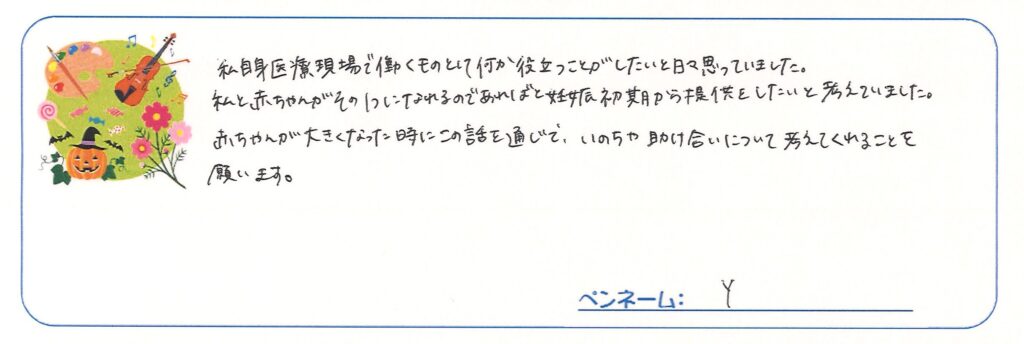 私自身医療現場で働くものとして何か役立つことがしたいと日々思っていました。
私と赤ちゃんがその1つになれるのであればと妊娠初期から提供をしたいと考えていました。
赤ちゃんが大きくなった時にこの話を通じて、いのちや助け合いについて考えてくれることを
願います。
ペンネーム: Y